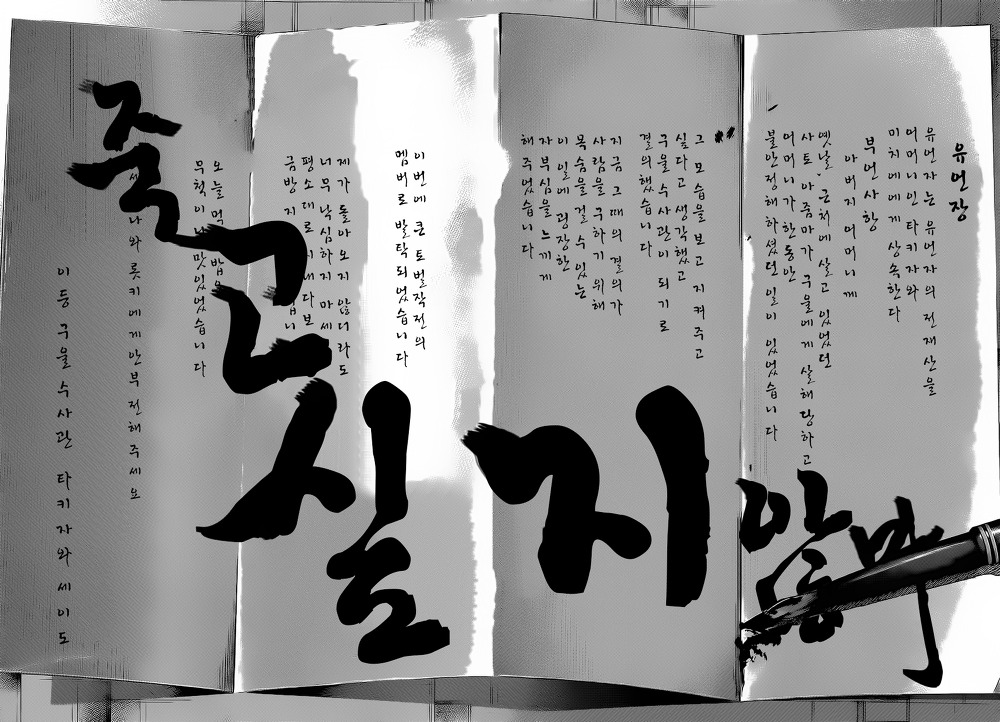 유언장
유언자는 유언자의 전재산을
어머니인 타키자와
미치에에게 상속한다
부언사항
아버지 어머니께
옛날, 근처에 살고 있었던
사토 아줌마가 구울에게 살해당하고
어머니가 한동안
불안정해하셨던 일이 있었습니다
그 모습을 보고 지켜주고
싶다고 생각했고
구울 수사관이 되기로
결의했습니다
지금 그 때의 결의가
사람을 구하기 위해
목숨을 걸 수 있는
이 일에 굉장한
자부심을 느끼게
해주었습니다
이번에 큰 토벌작전의
멤버로 발탁되었습니다
제가 돌아오지 않더라도
너무 낙심하지 마세
평소대로 지내다보
금방 지 니다
오늘 먹 밥
무척이 맛있었습니다
나와 롯키에게 안부 전해주세요
이등 구울 수사관 타키자와 세이도
죽 지 않